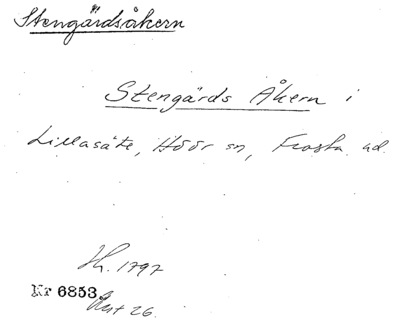 Stengärdsåkern
Stengärds Åkern i
Lillasäte, Höör sn, Frosta hd
Kr 6853
1797
26.